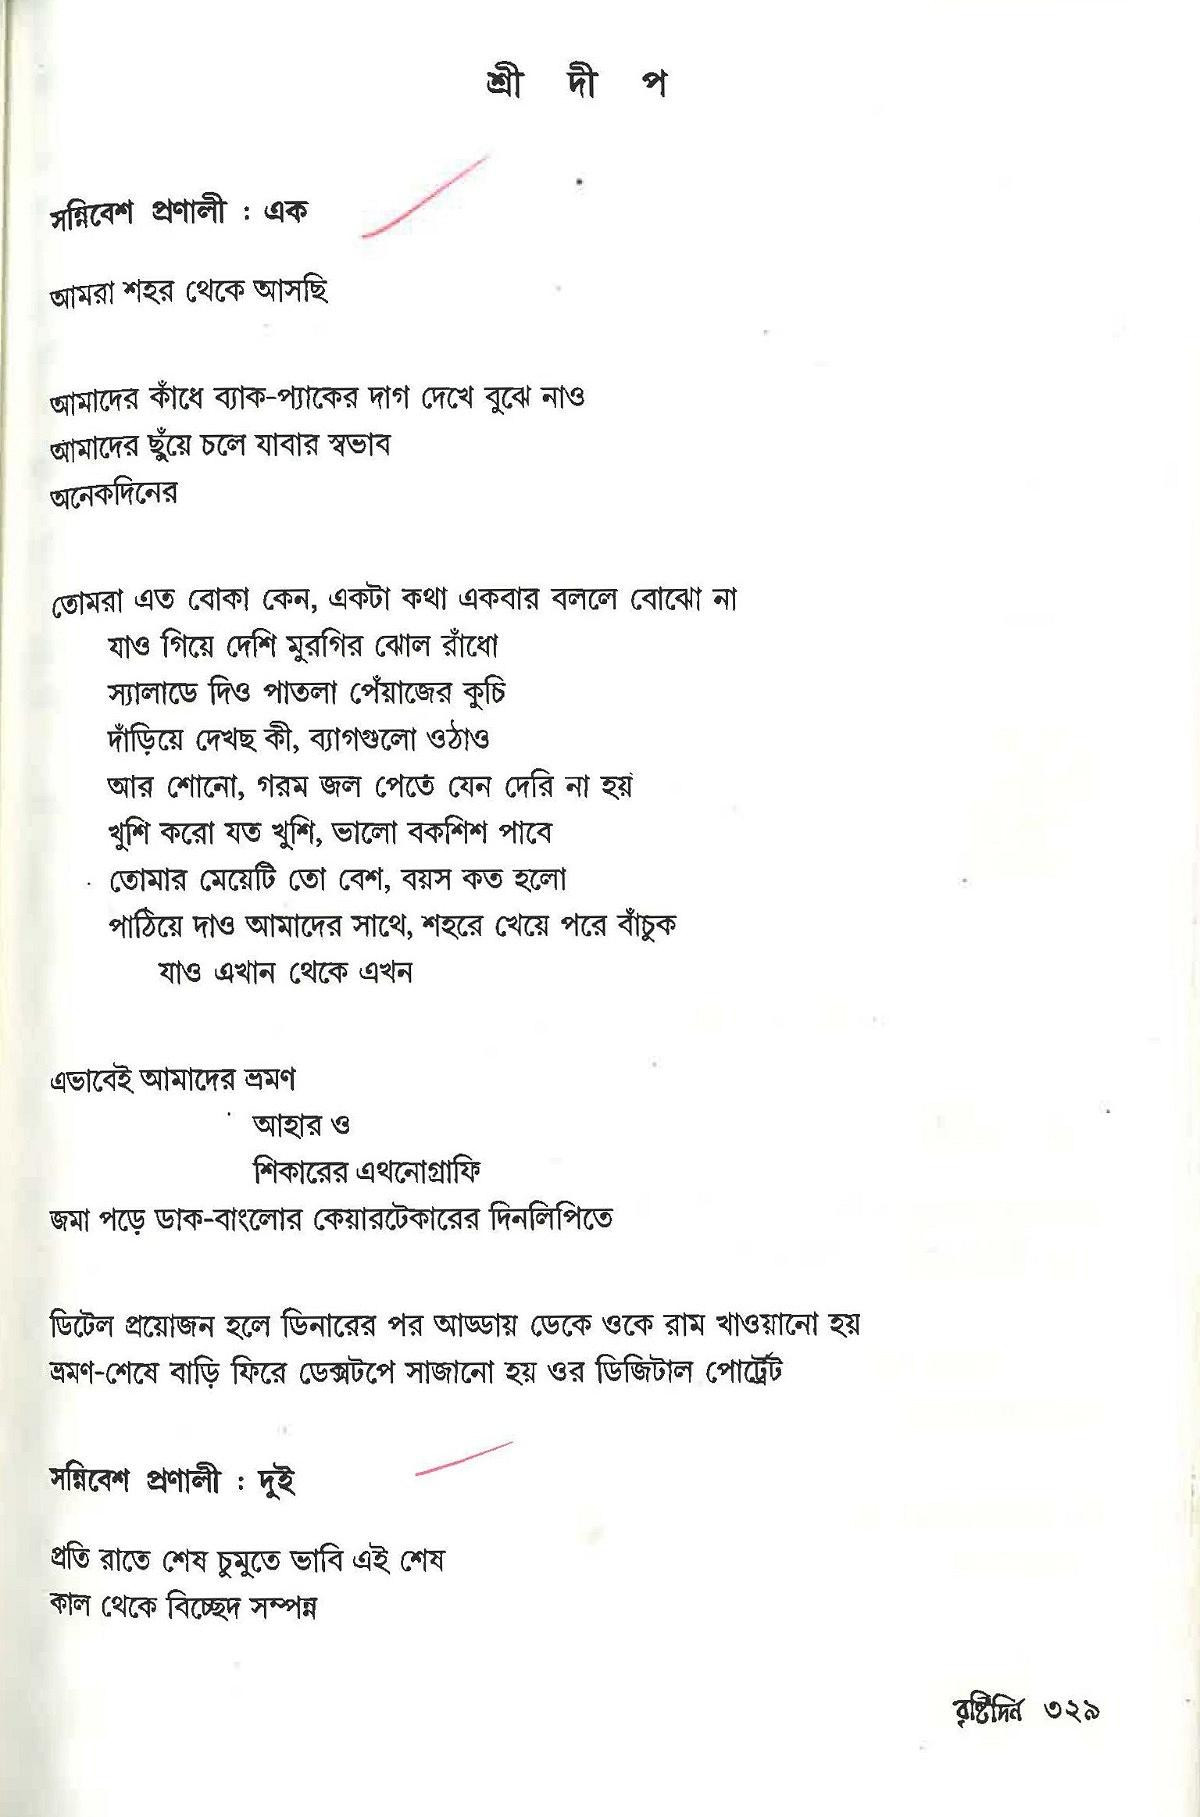 শ্রী দী প
সন্নিবেশ প্রণালী : এক
আমরা শহর থেকে আসছি
আমাদের কাঁধে ব্যাক-প্যাকের দাগ দেখে বুঝে নাও
আমাদের ছুঁয়ে চলে যাবার স্বভাব
অনেকদিনের
তোমরা এত বোকা কেন, একটা কথা একবার বললে বোঝো না
যাও গিয়ে দেশি মুরগির ঝোল রাঁধো
স্যালাডে দিও পাতলা পেঁয়াজের কুচি
দাঁড়িয়ে দেখছ কী, ব্যাগগুলো ওঠাও
আর শোনো, গরম জল পেতে যেন দেরি না হয়
খুশি করো যত খুশি, ভালো বকশিশ পাবে
তোমার মেয়েটি তো বেশ, বয়স কত হলো
পাঠিয়ে দাও আমাদের সাথে, শহরে খেয়ে পরে বাঁচুক
যাও এখান থেকে এখন
এভাবেই আমাদের ভ্রমণ
আহার ও
শিকারের এথনোগ্রাফি
জমা পড়ে ডাক-বাংলোর কেয়ারটেকারের দিনলিপিতে
ডিটেল প্রয়োজন হলে ডিনারের পর আড্ডায় ডেকে ওকে রাম খাওয়ানো হয়
ভ্রমণ-শেষে বাড়ি ফিরে ডেক্সটপে সাজানো হয় ওর ডিজিটাল পোর্ট্রেট
সন্নিবেশ প্রণালী : দুই
প্রতি রাতে শেষ চুমুতে ভাবি এই শেষ
কাল থেকে বিচ্ছেদ সম্পন্ন
বৃষ্টিদিন ৩২৯